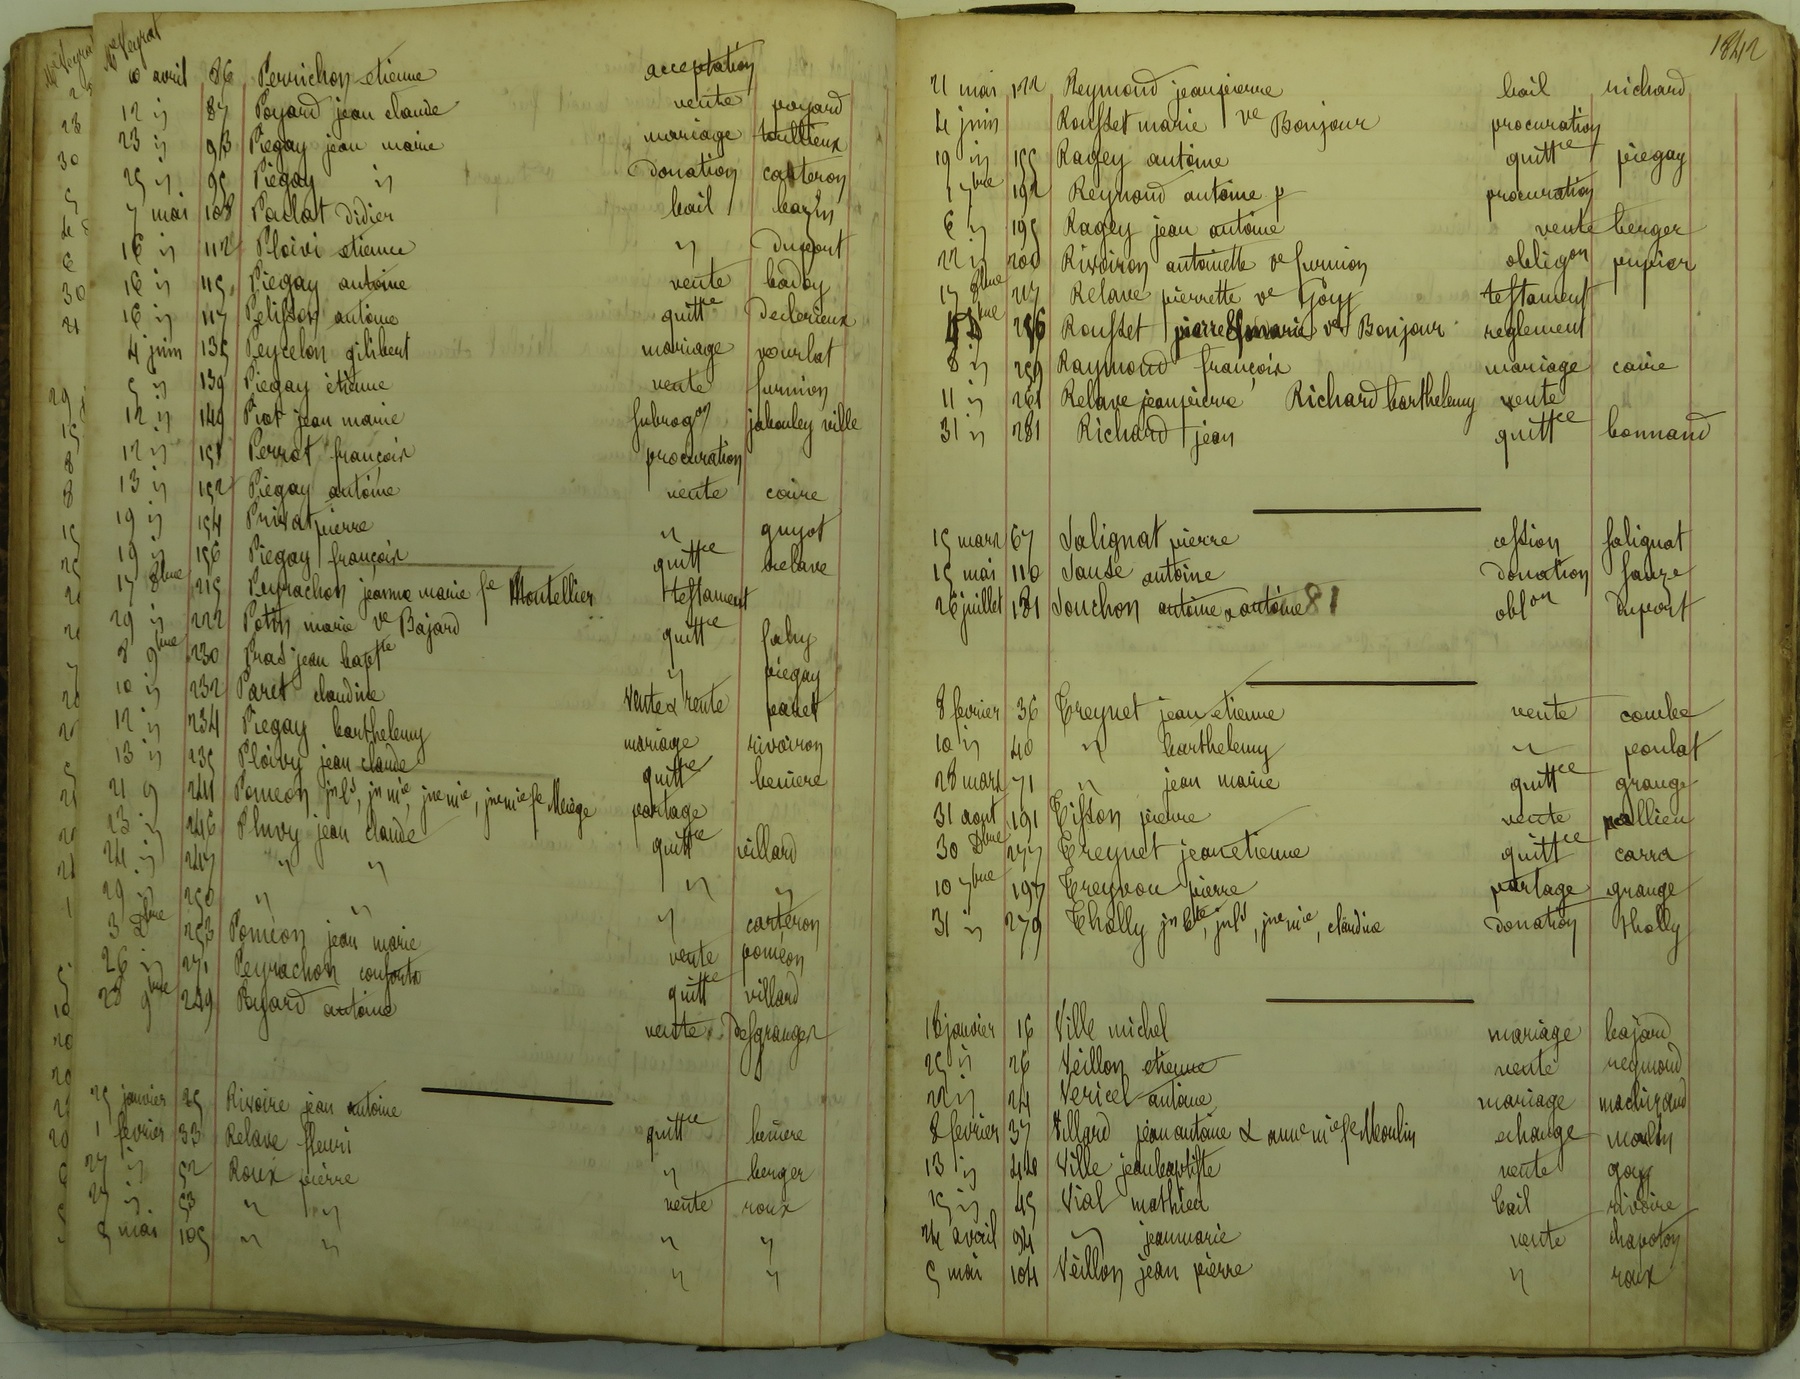 Me Veyrat
10 avril 86 Perrichon etienne acceptation
12 ij 87 Poyard jean claude vente poyard
23 ij 93 Piegay jean marie mariage toullieux
25 ij 95 Piegay ij Donation carteron
7 mai 108 Paclat Didier bail bazin
16 ij 112 Ploivi etienne ij Duport
16 ij 115 Piegay antoine vente badoy
16 ij 117 Pelisson antoine quittce Declerieux
4 juin 135 Peycelon gilibert mariage vourlat
5 ij 139 Piegay étienne vente furnion
12 ij 149 Piot jean marie subrogon jabouley ville
12 ij 151 Perrot françois procuration
13 ij 152 Piegay antoine vente caire
19 ij 154 Privat pierre ij guyot
19 ij 156 Piegay françois quittce relave
17 8bre 215 Peyrachon jeanne marie fe Montellier testament
29 ij 222 Potin marie ve Bajard quittce faby
8 9bre 230 Pras jean baptte ij piegay
10 ij 232 Paret claudine vente & rente paret
12 ij 234 Piegay barthelemy mariage rivoiron
13 ij 235 Ploivy jean claude quittce beniere
21 9 241 Pomeon jn ls, jn mie, jne mie, jne mie fe Meiège partage
23 ij 246 Pluvy jean claude quittce villard
24 ij 247 ij ij ij ij
29 ij 250 ij ij ij carteron
3 Dbre 253 Pomeon jean marie vente poméon
26 ij 271 Peyrachon conforte quittce villard
28 9bre 249 Poyard antoine vente Desgranges
25 janvier 25 Rivoire jean antoine quittce beniere
1 fevrier 33 Relave fleuri ij berger
27 ij 52 Roux pierre vente roux
27 ij 53 ij ij ij ij
8 mai 105 ij ij ij ij
1842
21 mai 122 Reymond jean pierre bail richard
4 juin Rousset marie ve Bonjour procuration
19 ij 155 Ragey antoine quittce piegay
1 7bre 192 Reymond antoine p procuration
6 ij 195 Ragey jean antoine vente berger
22 ij 200 Rivoiron antoinette ve furnion obligon pupier
17 8bre 217 Relave pierrette ve Goy testament
256 Rousset pierre & marie ve Bonjour reglement
8 ij 259 Raymond françois mariage caire
11 ij 261 Relave jean pierre Richard barthelemy vente
31 ij 281 Richard jean quittce bonnand
15 mars 67 Salignat pierre cession salignat
15 mai 110 Sauze antoine donation sauze
26 juillet 181 Souchon antoine & antoine 81 oblon duport
8 fevrier 36 Treynet jean etienne vente combe
10 ij 40 ij barthelemy ij poulat
28 mars 71 ij jean marie quittce grange
31 aout 191 Tisson pierre vente peallieu
30 Dbre 277 Treynet jean etienne quittce carra
10 7bre 197 Treyvou pierre partage grange
31 ij 279 Tholly jn bte, jn ls, jne mie, claudine donation tholly
16 janvier 16 Ville michel mariage bajard
25 ij 26 Veillon etienne vente reymond
22 ij 24 Vericel antoine mariage machizaud
8 fevrier 37 Villard jean antoine & anne mie fe Moulin echange moulin
13 ij 44 Ville jean baptiste vente goy
15 ij 45 Vial mathieu bail rivoire
24 avril 94 ij jean marie vente chapoton
5 mai 104 Veillon jean pierre ij roux